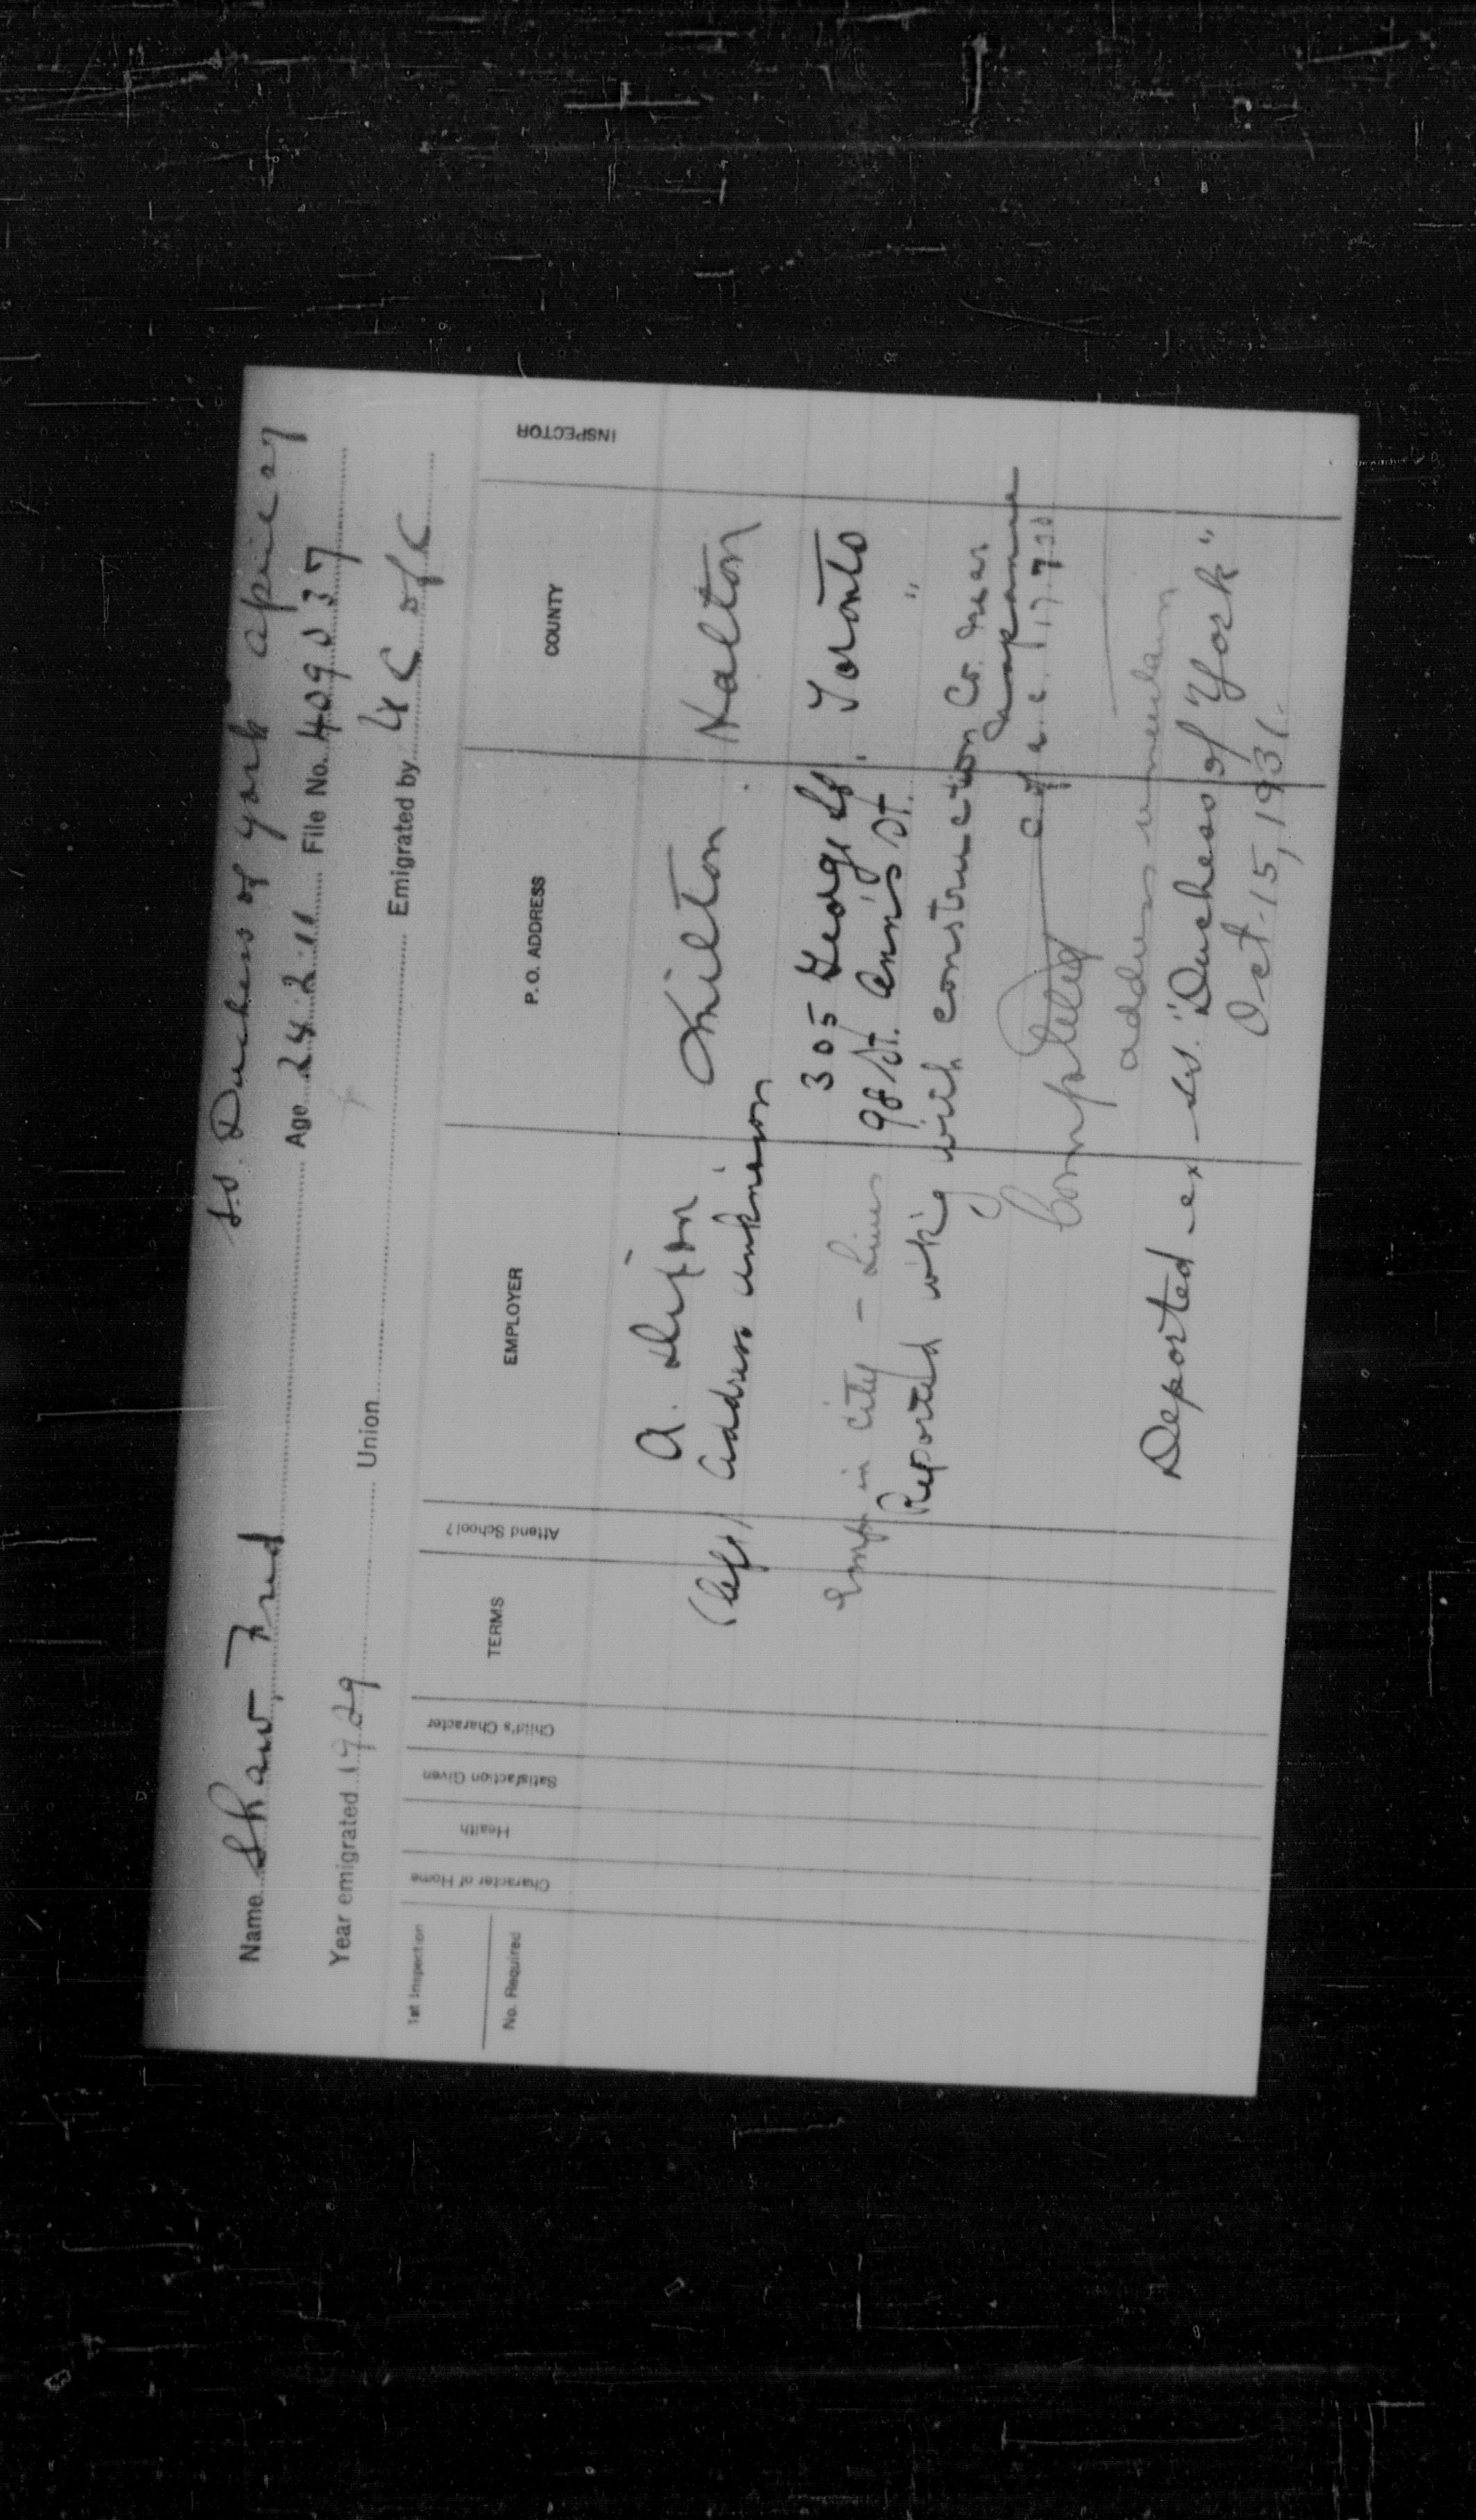 S.S. Duchess of York April 27
Name Shaw, Fred Age 24.2.11 File No. 409037
Year emigrated 1929 Union Emigrated by
1st Inspection
No. Required
Character of Home
Health
Satisfaction Given
Child's Character
TERMS
Attend School?
EMPLOYER
P. O. ADDRESS
COUNTY
INSPECTOR
A. Milton Halton
(left) Address unknown
305 George St. Toronto
Emp in city - Lives 98 St. Ann's St. "
Reported wk'g with construction Co. near
Napanee
Completed
address uncertain
Deported - ex - s.s. "Duchess of York"
Oct. 15, 1931.